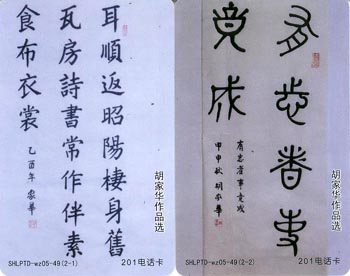 耳順返昭陽棲身舊
瓦房詩書常作伴素
食布衣裳
乙酉年 家華
胡家华作品选
SHLPTD-wz05-49(2-1)
201电话卡
有志者事
竟成
有志者事竟成
甲申秋 胡家华
胡家华作品选
SHLPTD-wz05-49(2-2)
201电话卡